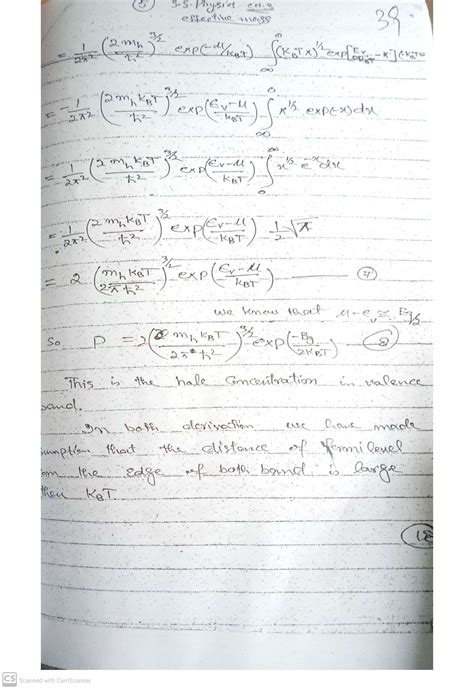 5 S.S. Physics ch.3
effective mass
39
= 1/2π² (2m_h/ħ²)^3/2 exp(-μ/k_BT) ∫_∞^0 (k_BT x)^1/2 exp[E_v/k_BT - x]
= -1/2π² (2m_h k_BT/ħ²)^3/2 exp(E_v-μ/k_BT) ∫_∞^0 x^1/2 exp(-x)dx
= 1/2π² (2m_h k_BT/ħ²)^3/2 exp(E_v-μ/k_BT) ∫_0^∞ x^1/2 e^-x dx
= 1/2π² (2m_h k_BT/ħ²)^3/2 exp(E_v-μ/k_BT) 1/2 √π
= 2 (m_h k_BT/2πħ²)^3/2 exp(E_v-μ/k_BT)
we know that μ-e_v ≅ Eg/2
So P = 2(m_h k_BT/2πħ²)^3/2 exp(-Eg/2k_BT) 8
This is the hole concentration in valence
band.
In both derivation we have made
sumption that the distance of fermi level
om the edge of both band is large
then K_BT.
18
CS Scanned with CamScanner